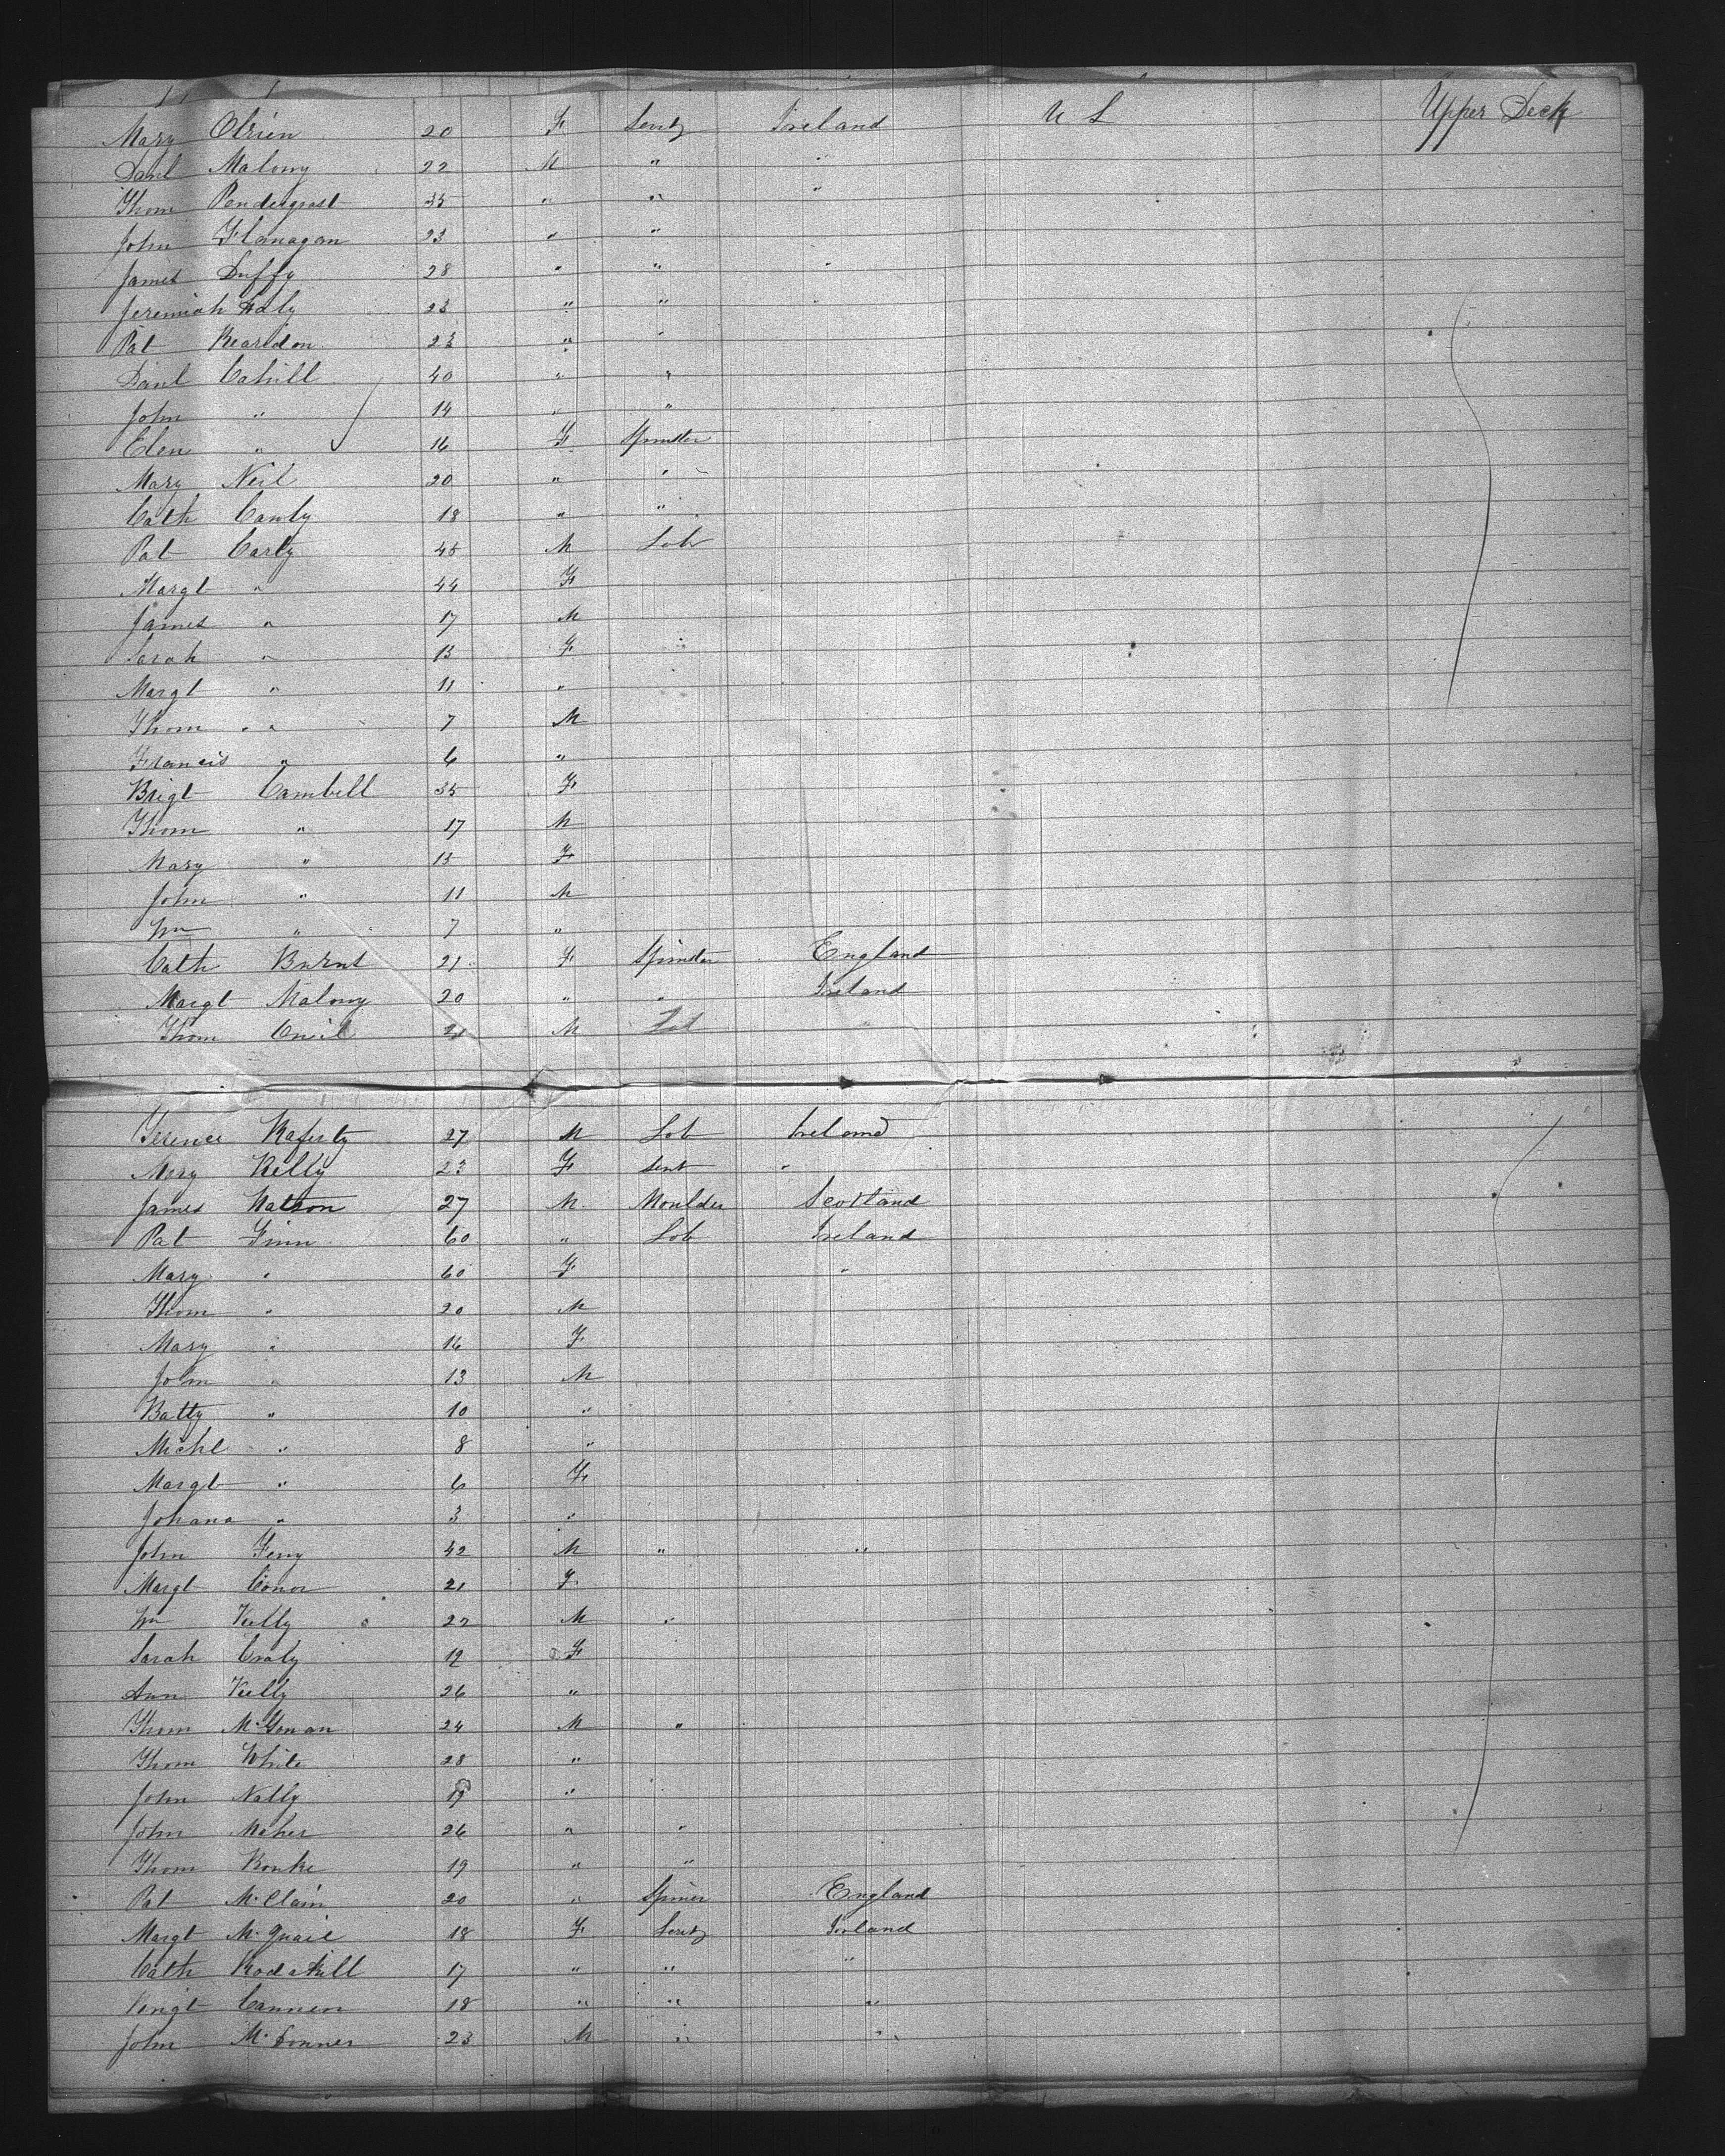 Mary Obrien 20 F Servt Ireland U S Upper Deck
Danl Malony 22 M " "
Thom Pendergrast 35 " " "
John Flanagan 23 " "
James Duffy 28 " " "
Jeremiah Daly 23 " " "
Pat Reardon 23 " "
Danl Cahill 40 " "
John " 14 " "
Elen " 16 F Spinster
Mary Neil 20 " "
Cath Canty 18 " "
Pat Carty 45 M Lab
Margt " 44 F
James " 17 M
Sarah " 13 F
Margt " 11 "
Thom " 7 M
Francis " 6 "
Brigt Cambell 35 F
Thom " 17 M
Mary " 13 F
John " 11 M
Wm " 7 "
Cath Burns 21 F Spinster England
Margt Malony 20 " " Ireland
Thom Oneil 21 M Lab "
Terence Raferty 27 M Lab Ireland
Mary Kelly 23 F Servt "
James Watson 27 M Moulder Scotland
Pat Finn 60 " Lab Ireland
Mary " 60 F "
Thom " 20 M
Mary " 16 F
John " 13 M
Batty " 10 "
Michl " 8 "
Margt " 6 F
Johana " 3 "
John Feny 42 M " "
Margt Conor 21 F
Wm Kelly 22 M "
Sarah Craly 19 F
Ann Kelly 26 "
Thom McGowan 24 M "
Thom White 28 "
John Nally 19 "
John Maher 26 " "
Thom Rourke 19 " "
Pat McClain 20 " Spiner England
Margt McQuail 18 F Servt Ireland
Cath 17 " " "
Brigt Cannen 18 " " "
John McConner 23 M " "